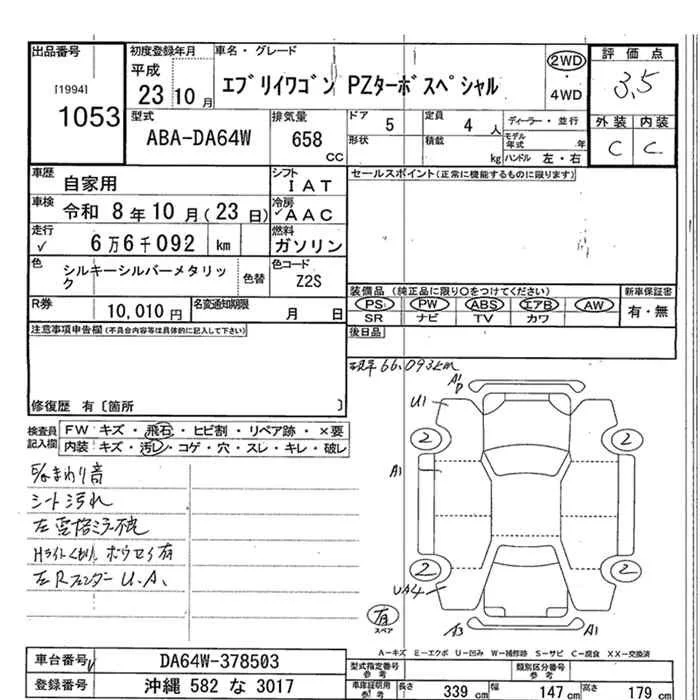 出品番号 初度登録年月 車名・グレード 評価点
[1994] 平成 エブリイワゴン PZターボスペシャル 2WD 3.5
1053 23 10 月 4WD
型式 排気量 ドア 5 定員 4 人 ディーラー・並行 外装 内装
ABA-DA64W 658 CC 形状 積載 kg モデル年式 年 C C
ハンドル 左・右
車歴 自家用 シフト IAT セールスポイント(正常に機能するものに限ります)
車検 令和 8 年 10 月(23 日) 冷房 AAC
走行 6万6千092 km 燃料 ガソリン
色 シルキーシルバーメタリック 色替 色コード Z2S
装備品 (純正品に限り○をつけてください) 新車保証書
PS PW ABS エアB AW 有・無
SR ナビ TV カワ
R券 10,010 円 名変通知期限 月 日
後日品
注意事項申告欄(不具合内容等は具体的に記入して下さい)
現車66,093km
修復歴 有〔箇所 〕
検査員記入欄 FW キズ・飛石・ヒビ割・リペア跡・×要
内装:キズ・汚レ・コゲ・穴・スレ・キレ・破レ
シート汚れ
左Rフェンダー U.A.
A1P
U1
2 2
A1
2 2
UA4
有 スペア
A3 A1
A-キズ E-エクボ U-凹み W-補修跡 S-サビ C-腐食 XX-交換済
車台番号 DA64W-378503 型式指定番号 参考 類別区分番号 参考
登録番号 沖縄 582 な 3017 車庫証明用 参考 長さ 339 cm 幅 147 cm 高さ 179 cm